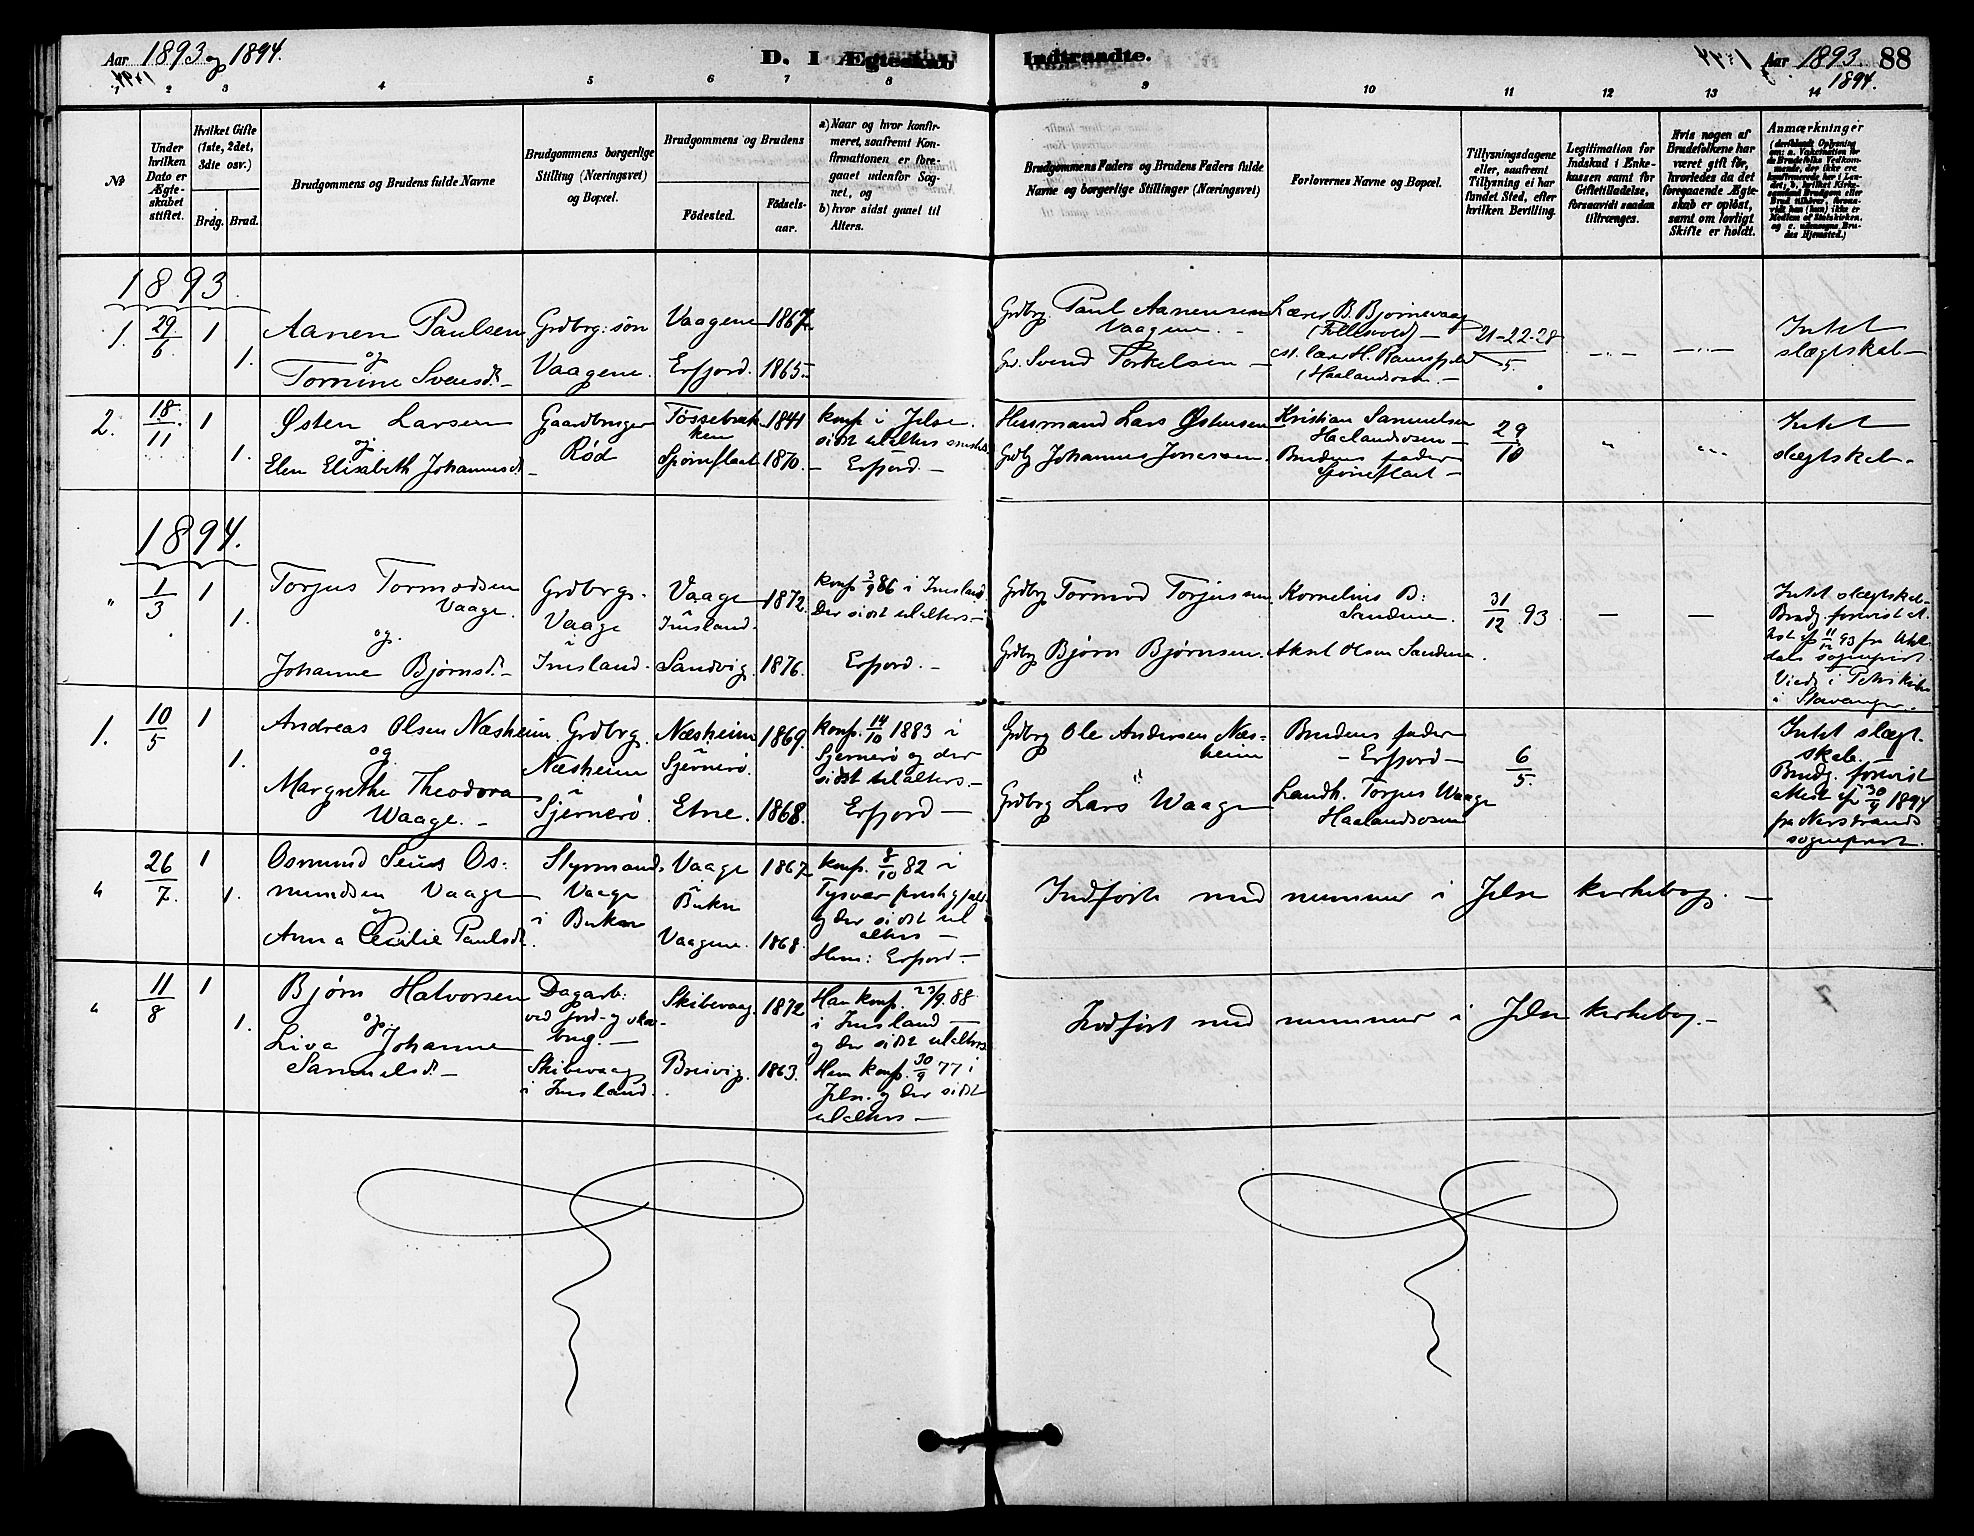 Aar 1893 og 1894.
D. I Ægteskab
Indtraadte.
Aar 1893 88
1894.
2 3 4 5 6 7 8 9 10 11 12 13 14
No
Under hvilken Dato er Ægteskabet stiftet.
Hvilket Gifte (1ste, 2det, 3die osv.)
Brdg. Brud.
Brudgommens og Brudens fulde Navne
Brudgommens borgerlige Stilling (Næringsvei) og Bopæl.
Brudgommens og Brudens
Fødested.
Fødsels-aar.
a) Naar og hvor konfir-
meret, saafremt Kon-
firmationen er fore-
gaaet udenfor Sog-
net, og
b) hvor sidst gaaet til
Alters.
Brudgommens Faders og Brudens Faders fulde
Navne og borgerlige Stillinger (Næringsvei)
Forlovernes Navne og Bopæl.
Tillysningsdagene
eller, saafremt
Tillysning ei har
fundet Sted, efter
hvilken Bevilling.
Legitimation for
Indskud i Enke-
kassen samt for
Giftetilladelse,
forsaavidt saadan
tiltrænges.
Hvis nogen af
Brudefolkene har
været gift før,
hvorledes da det
foregaaende Ægte-
skab er opløst,
samt om lovligt
Skifte er holdt.
Anmærkninger
1893.
1. 29/6 1 1.
Aanen Paulsen
og
Tornine Svensd.
Grdbrg: søn
Vaagene.
Vaagene 1867
Erfjord. 1865
Grdbrg. Paul Aanensen
Vaagene.
Svend Torkelsen
Lærer B. Bjørnevaag
21-22-28
5
Intet
slægtskab
2. 18/11 1 1.
Østen Larsen
og
Elen Elisabeth Johannesd.
Gaardbruger
Rød
1841
1870.
konf. i Jelse.
Erfjord.
Husmand Lars Østensen
Johannes
Kristian Samuelsen
Haalandsosen
Brudens fader
29
10
Intet
slægtskab.
1894.
" 1/3 1 1.
Torjus Tormodsen
Vaage.
og
Johanne Bjørnsd.
Grdbrg.
Vaage
i
Imsland.
Vaage 1872.
Imsland.
Sandvig. 1876.
konf. 3/9 86 i Imsland.
Der sidst til alters
Erfjord.
Grdbrg Tormod Torjussen
Grdbrg Bjørn Bjørnsen.
Kornelius B.
Sandene.
Aksel Olsen Sandene.
31/12 93
Intet slægtskab
Viede i Petrikirken
i Stavanger.
1. 10/5 1 1.
Andreas Olsen Næsheim.
og
Margrethe Theodora
Waage.
Grdbrg.
Næsheim
i
Sjernerø.
Næsheim 1869.
Sjernerø.
Etne. 1868.
konf. 14/10 1883 i
Sjernerø og der
sidst til alters
Erfjord
Grdbrg Ole Andersen Næs-
heim
Grdbrg Lars Waage
Brudens fader
Erfjord
Landh. Torjus Waage
Haalandsosen
6
5.
Intet slægt-
skab.
Brudg. forevist
attest af 30/4 1894
fra Nerstrands
sogneprest.
" 26/7 1 1.
Osmund Seius Os-
mundsen Vaage
og
Anna Cecilie Paulsd.
Styrmand.
Vaage
i Bukn
Vaage 1867
i Bukn
Vaagene. 1868.
og der sidst til
alters
Hun: Erfjord.
Indførte med nummer i Jelse kirkebog.
" 11/8 1 1.
Bjørn Halvorsen
og
Liva Johanne
Samuelsd.
Dagarb:
ved jord- og skov-
brug.
Skibevaag
i Imsland.
Skibevaag. 1872
Breivig. 1863.
Han konf. 23/9. 88
i Imsland
og der sidst til alters
Hun konf. 30/9 77 i
Jelse og der sidst
til alters
Indført med nummer i Jelse kirkebog.